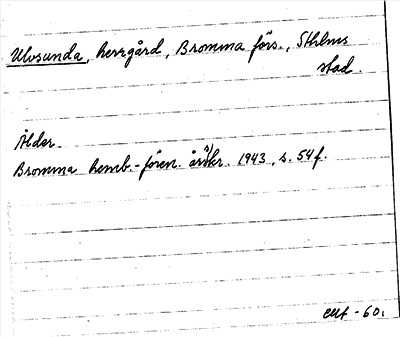 Ulvsunda, herrgård, Bromma förs., Sthlms
stad.
Ålder.
Bromma hemb.-fören. årskr. 1943, s. 54f.
-60.